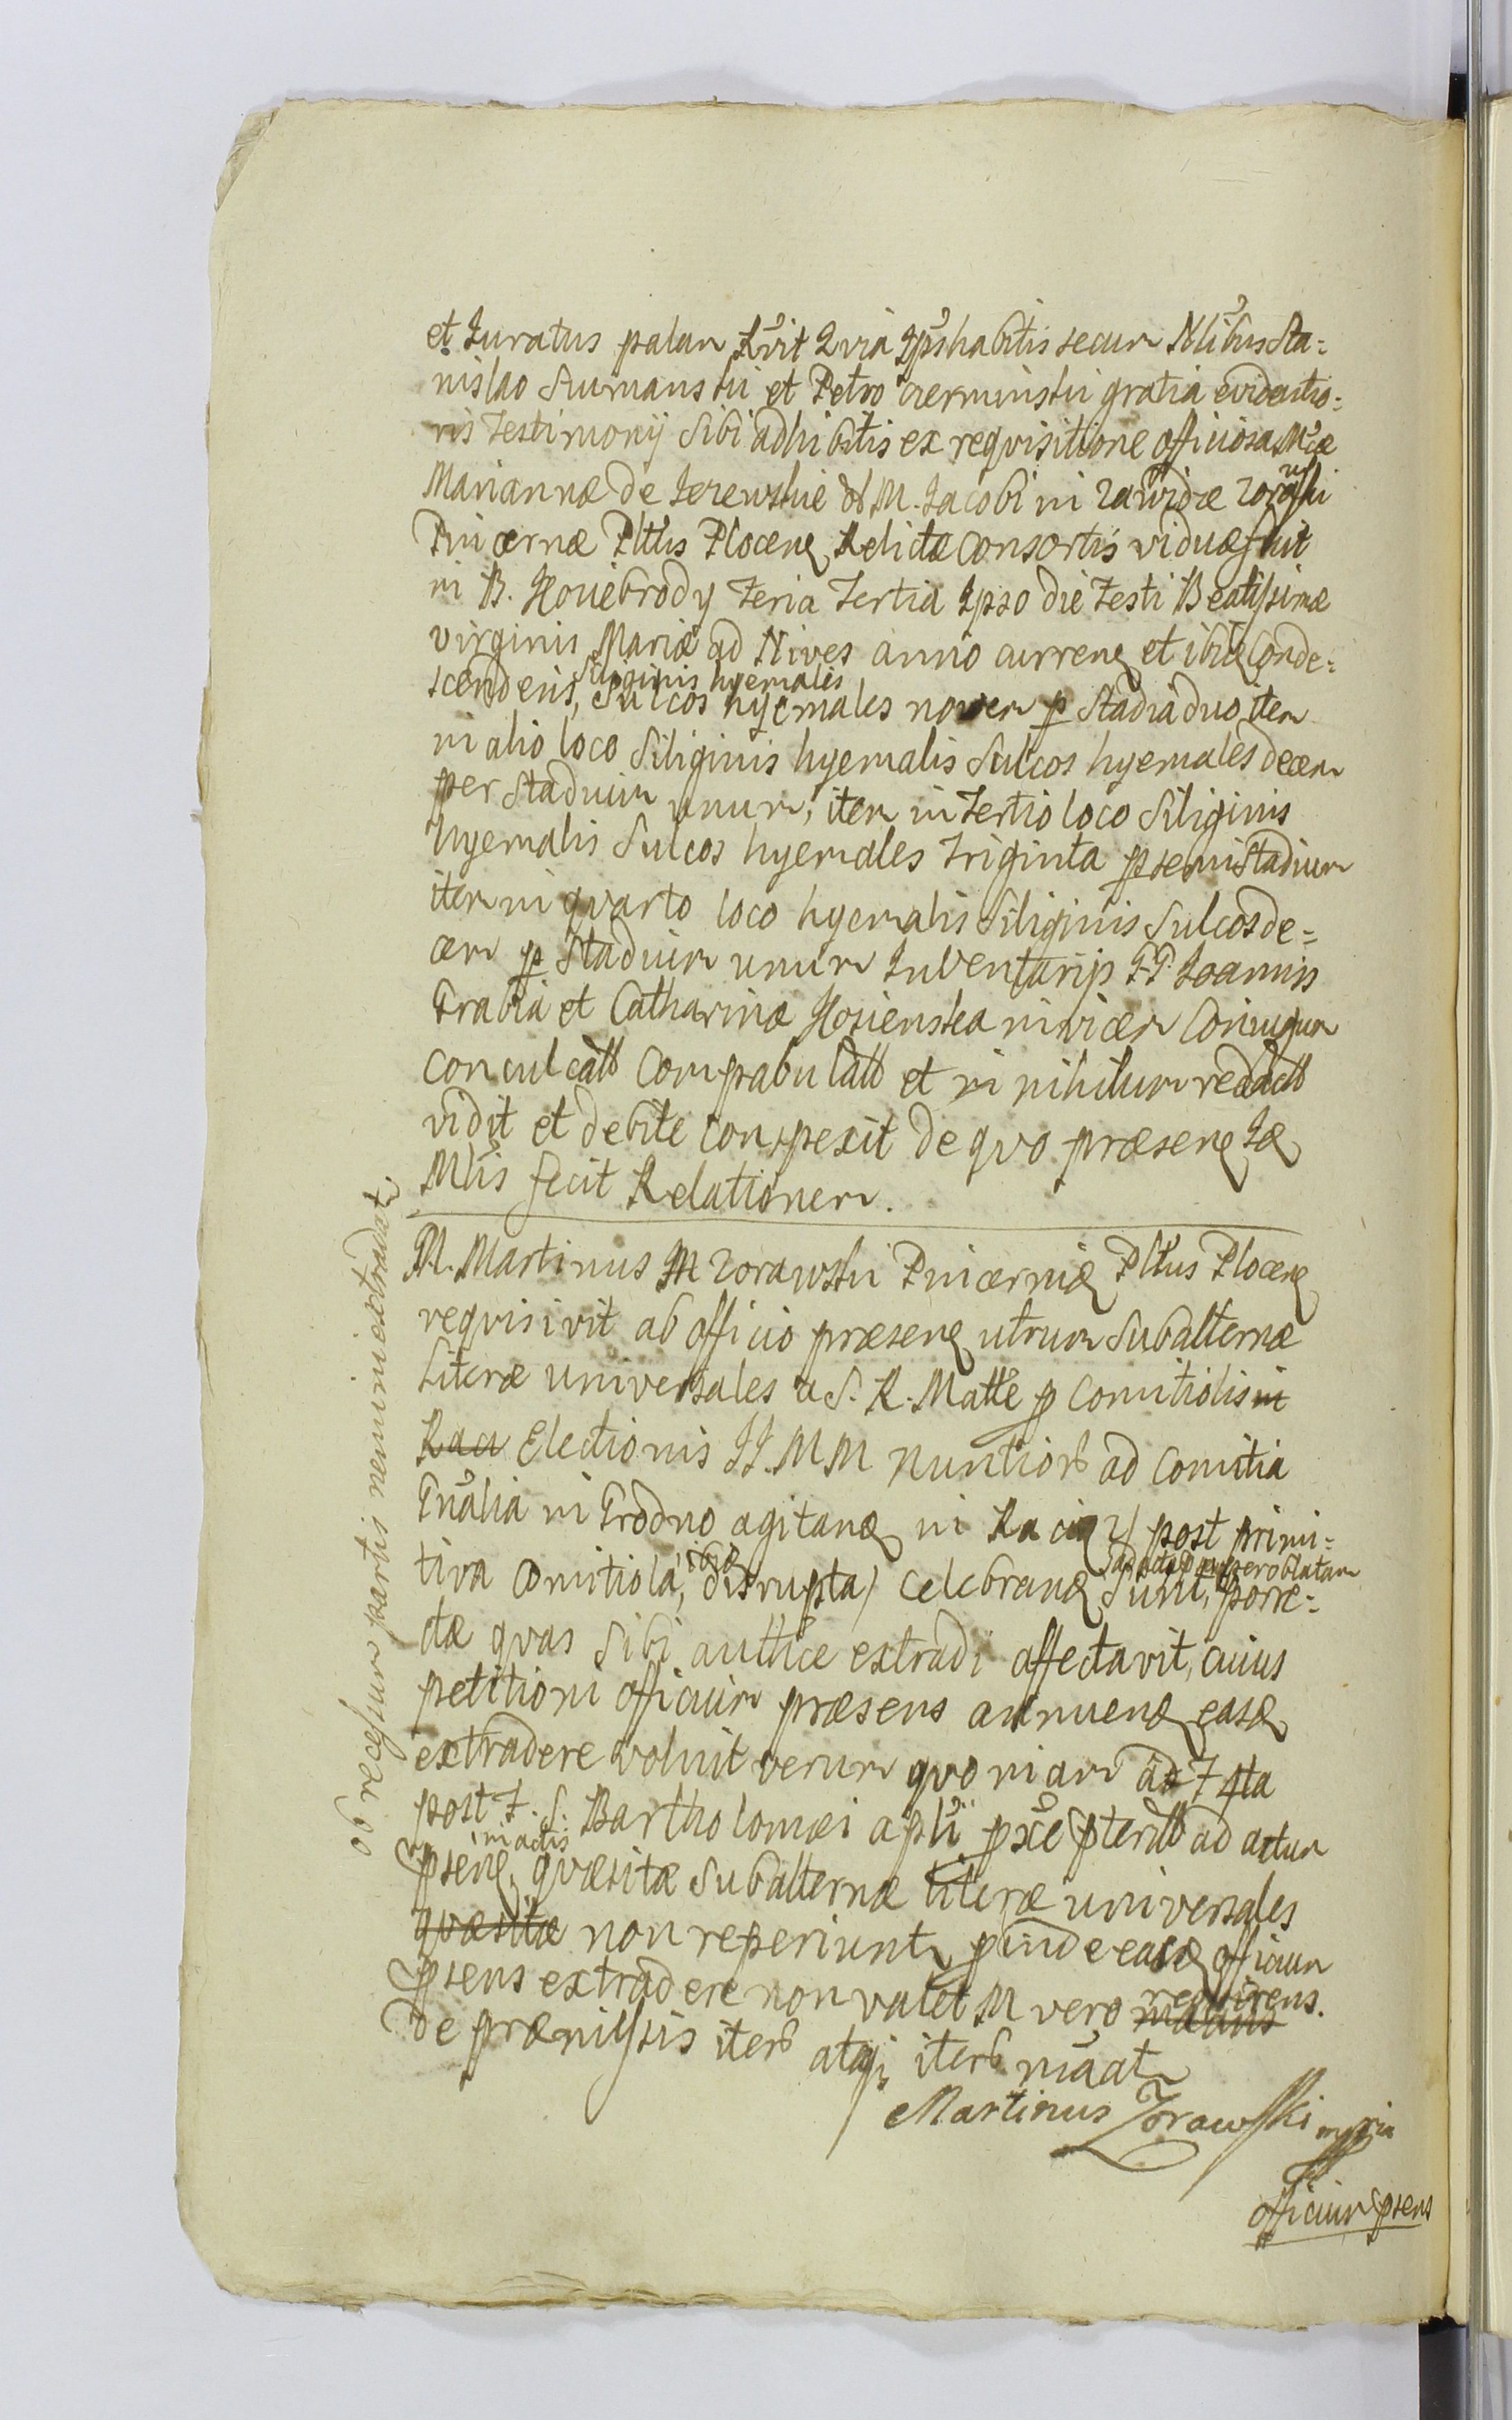 et Juratus palam Rvit Qvia Ipshabitis secum Nlibus Sta=
nislao Szumanski et Petro Czerminski gratia evidentio=
ris Testimonij Sibi adhibitis ex reqvisitione officiosa Mcæ
Mariannæ de Jezewskie M. Jacobi in Zawidz Zorawski
Pincernæ Pltus Plocen Relictæ Consortis viduæ fuit
in B. Koziebrody Feria Tertia Ipso die Festi Beatissimæ
virginis Mariæ ad Nives anno curren et ibi Conde=
scendens, Siliginis hyemalis Sulcos hyemales novem p Stadia duo item
in alio loco Siliginis hyemalis Sulcos hyemales decem
per Stadium unum, item in Tertio loco Siliginis
hyemalis Sulcos hyemales Triginta p semistadium
item in qvarto loco hyemalis Siliginis Sulcos de=
cem p Stadium unum Inventarijs GG. Joannis
Grabia et Catharinæ invicem Coniugum
conculcatt Compabulatt et in nihilum redactt
vidit et debite conspexit de qvo præsen Ja
Mlis fecit Relationem.
M. Martinus Zorawski Pincernia Pltus Plocen
reqvisivit ab officio præsen utrum Subalternæ
Literæ universales a S. R. Matte p Comitiolis in
Raci Electionis JJ. MM Nuntiorb ad Comitia
Gnalia in Grodno agitan in Raciąz / post primi=
tiva Comitiola, ibi disrupta / celebran Sunt, ad acta p oblatam porre=
ctæ qvas Sibi authce extradi affectavit, cuius
petitioni officium præsens annuen eas
extradere voluit verum qvoniam ad F 4ta
post F. S. Bartholomæi apli pxe pteritt ad actum
psen, in actis qvæsitæ Subalternæ literæ universales
qvæsitæ non reperiunt, pinde eas officium
psens extradere non valet M vero reqvirens.
De præmissis iterb atqi iterb mãat
Martinus Zorawski mpria
officium psens
ob recessum partis nemini extradat